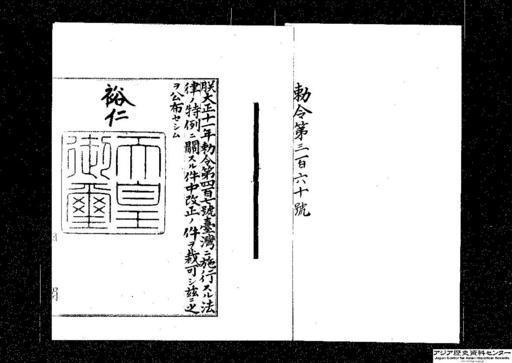 勅令第三百六十號
朕大正十一年勅令第四百七號臺灣ニ施行スル法
律ノ特例ニ關スル件中改正ノ件ヲ裁可シ茲ニ之
ヲ公布セシム
裕仁
天皇
御璽
アジア歴史資料センター
Japan Center for Asian Historical Records